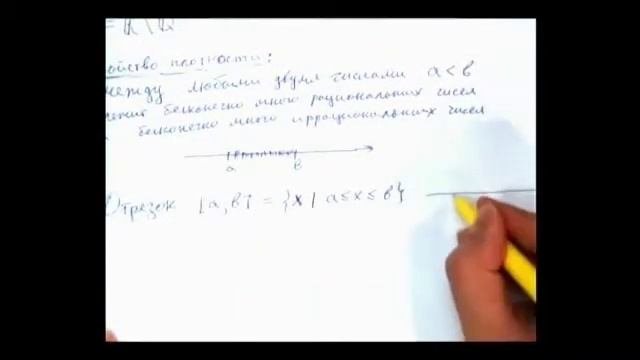 = ℝ \ ℚ
ойство плотности:
между любыми двумя числами a < b
бесконечно много рациональных чисел
бесконечно много иррациональных чисел
a b
Отрезок [a, b] = {x | a ≤ x ≤ b}